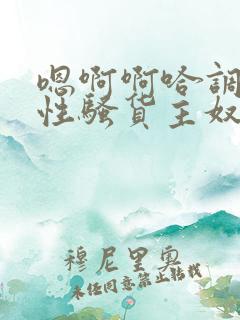 嗯啊啊哈调
性骚货主奴
穆尼里奥
未经同意禁止转载